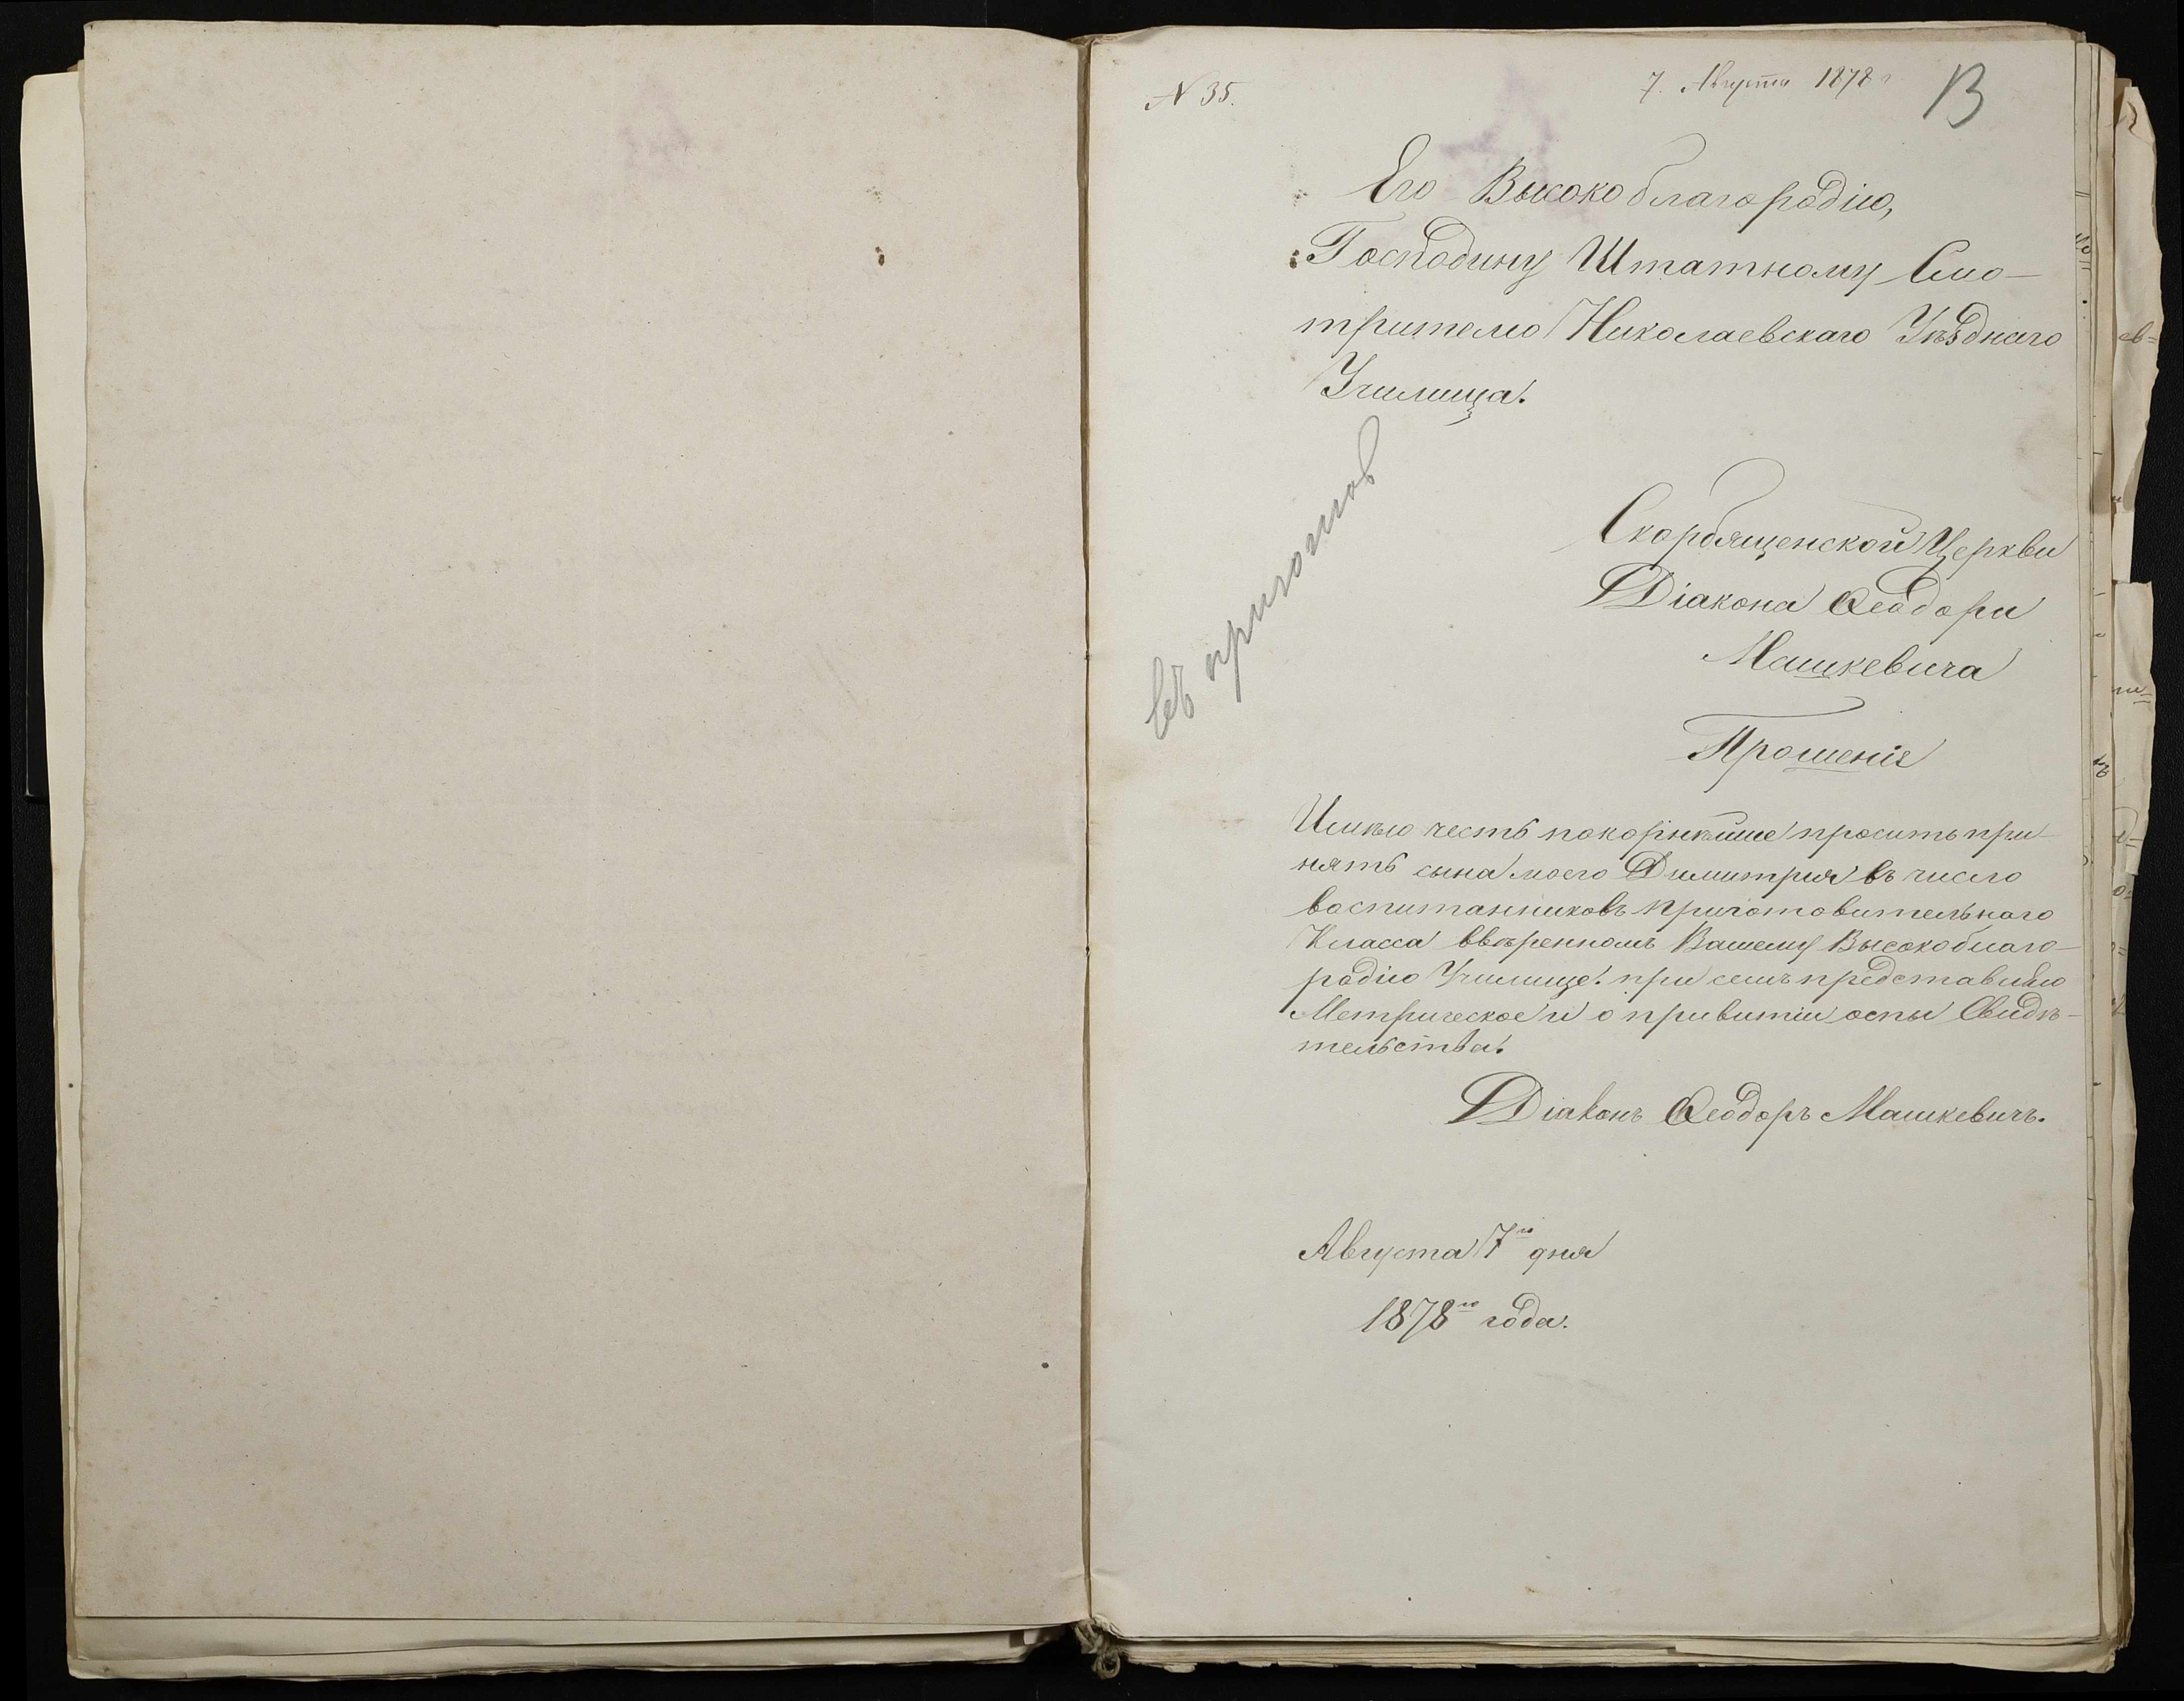 N 35.
7. Августа 1878 г
13
Его Высокоблагородію,
Господину Штатному Смо-
трителю Николаевскаго Уѣзднаго
Училища.
въ приготов
Скорбященской Церкви
Діакона Ѳеодора
Машкевича
Прошеніе
Имѣю честь покорнѣйше просить при-
нять сына моего Димитрія въ число
воспитанниковъ приготовительнаго
Класса ввѣренномъ Вашему Высокоблаго-
родію Училище. при семъ представляю
Метрическое и о привитіи оспы Свидѣ-
тельства.
Діаконъ Ѳеодоръ Машкевичъ.
Августа 7го дня
1878го года.